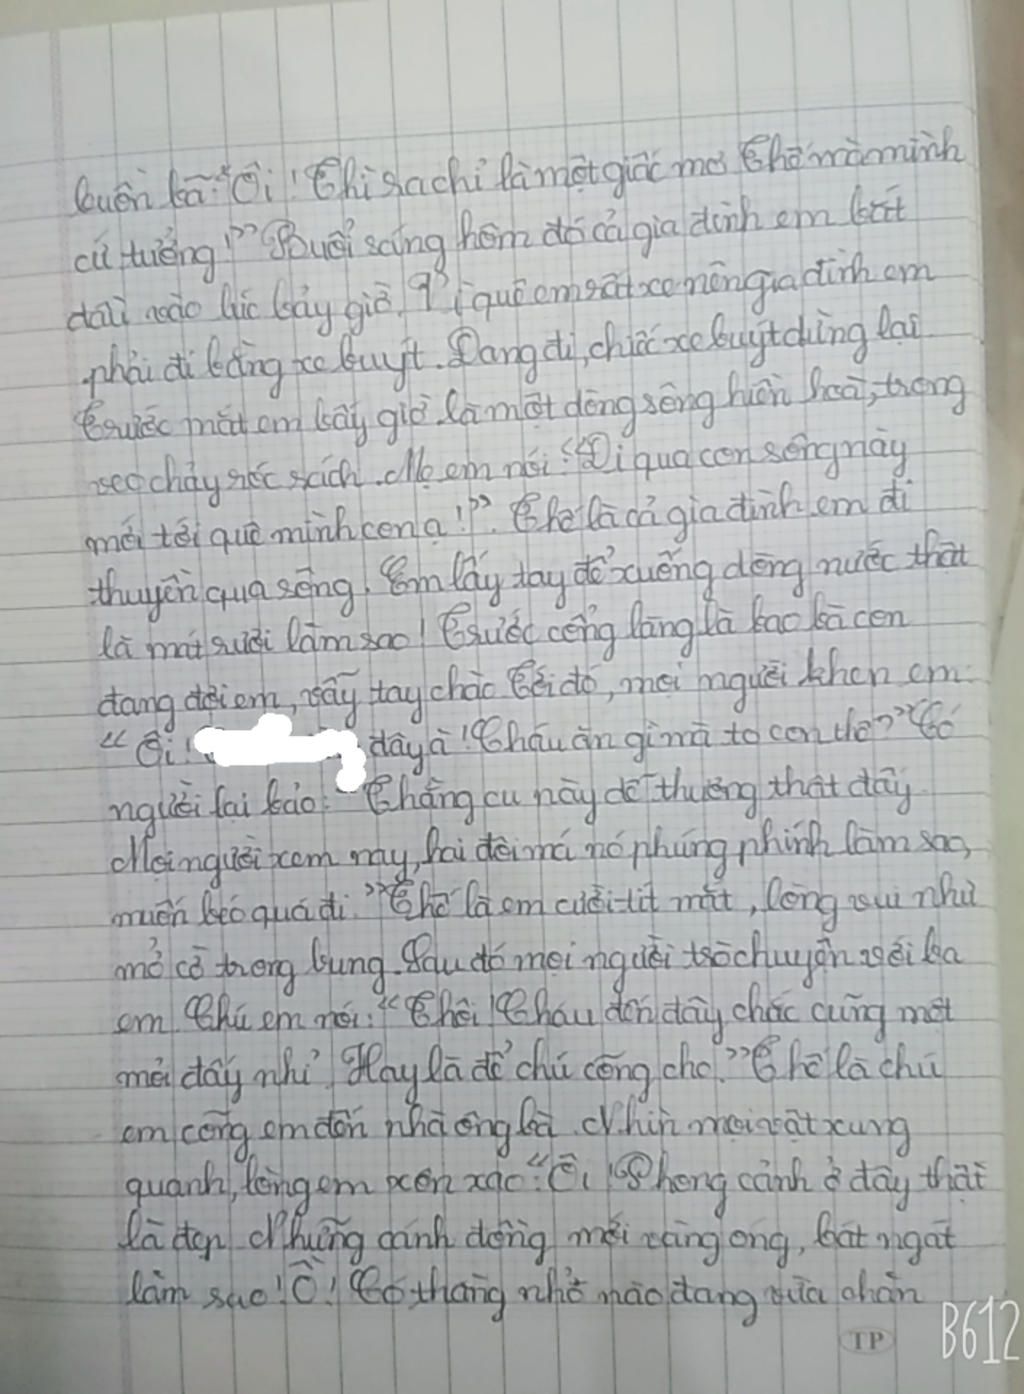 buồn bã: "Ôi! Thì ra chỉ là một giấc mơ. Thế mà mình
cứ tưởng!" Buổi sáng hôm đó cả gia đình em bắt
đầu vào lúc bảy giờ. Vì quê em rất xa nên gia đình em
phải đi bằng xe buýt. Đang đi, chiếc xe buýt dừng lại
Trước mắt em bây giờ là một dòng sông hiền hoà, trong
veo chảy róc rách. Mẹ em nói: "Đi qua con sông này
mới tới quê mình con ạ!". Thế là cả gia đình em đi
thuyền qua sông. Em lấy tay để xuống dòng nước thật
là mát rượi làm sao! Trước cổng làng là bao bà con
đang đợi em, vẫy tay chào. Tới đó, mọi người khen em:
"Ôi! đây à! Cháu ăn gì mà to con thế?" Có
người lại bảo: "Thằng cu này dễ thương thật đấy.
Mọi người xem này, hai đôi má nó phúng phính làm sao,
muốn béo quá đi." Thế là em cười tít mắt, lòng vui như
mở cờ trong bụng. Sau đó mọi người trò chuyện với ba
em. Chú em nói: "Thôi! Cháu đến đây chắc cũng mệt
mỏi đấy nhỉ. Hay là để chú cõng cho." Thế là chú
em cõng em đến nhà ông bà. Nhìn mọi vật xung
quanh, lòng em xôn xao: "Ôi! Phong cảnh ở đây thật
là đẹp. Những cánh đồng mới vàng óng, bát ngát
làm sao! Ồ! Có thằng nhỏ nào đang vừa chăn
TP
B612